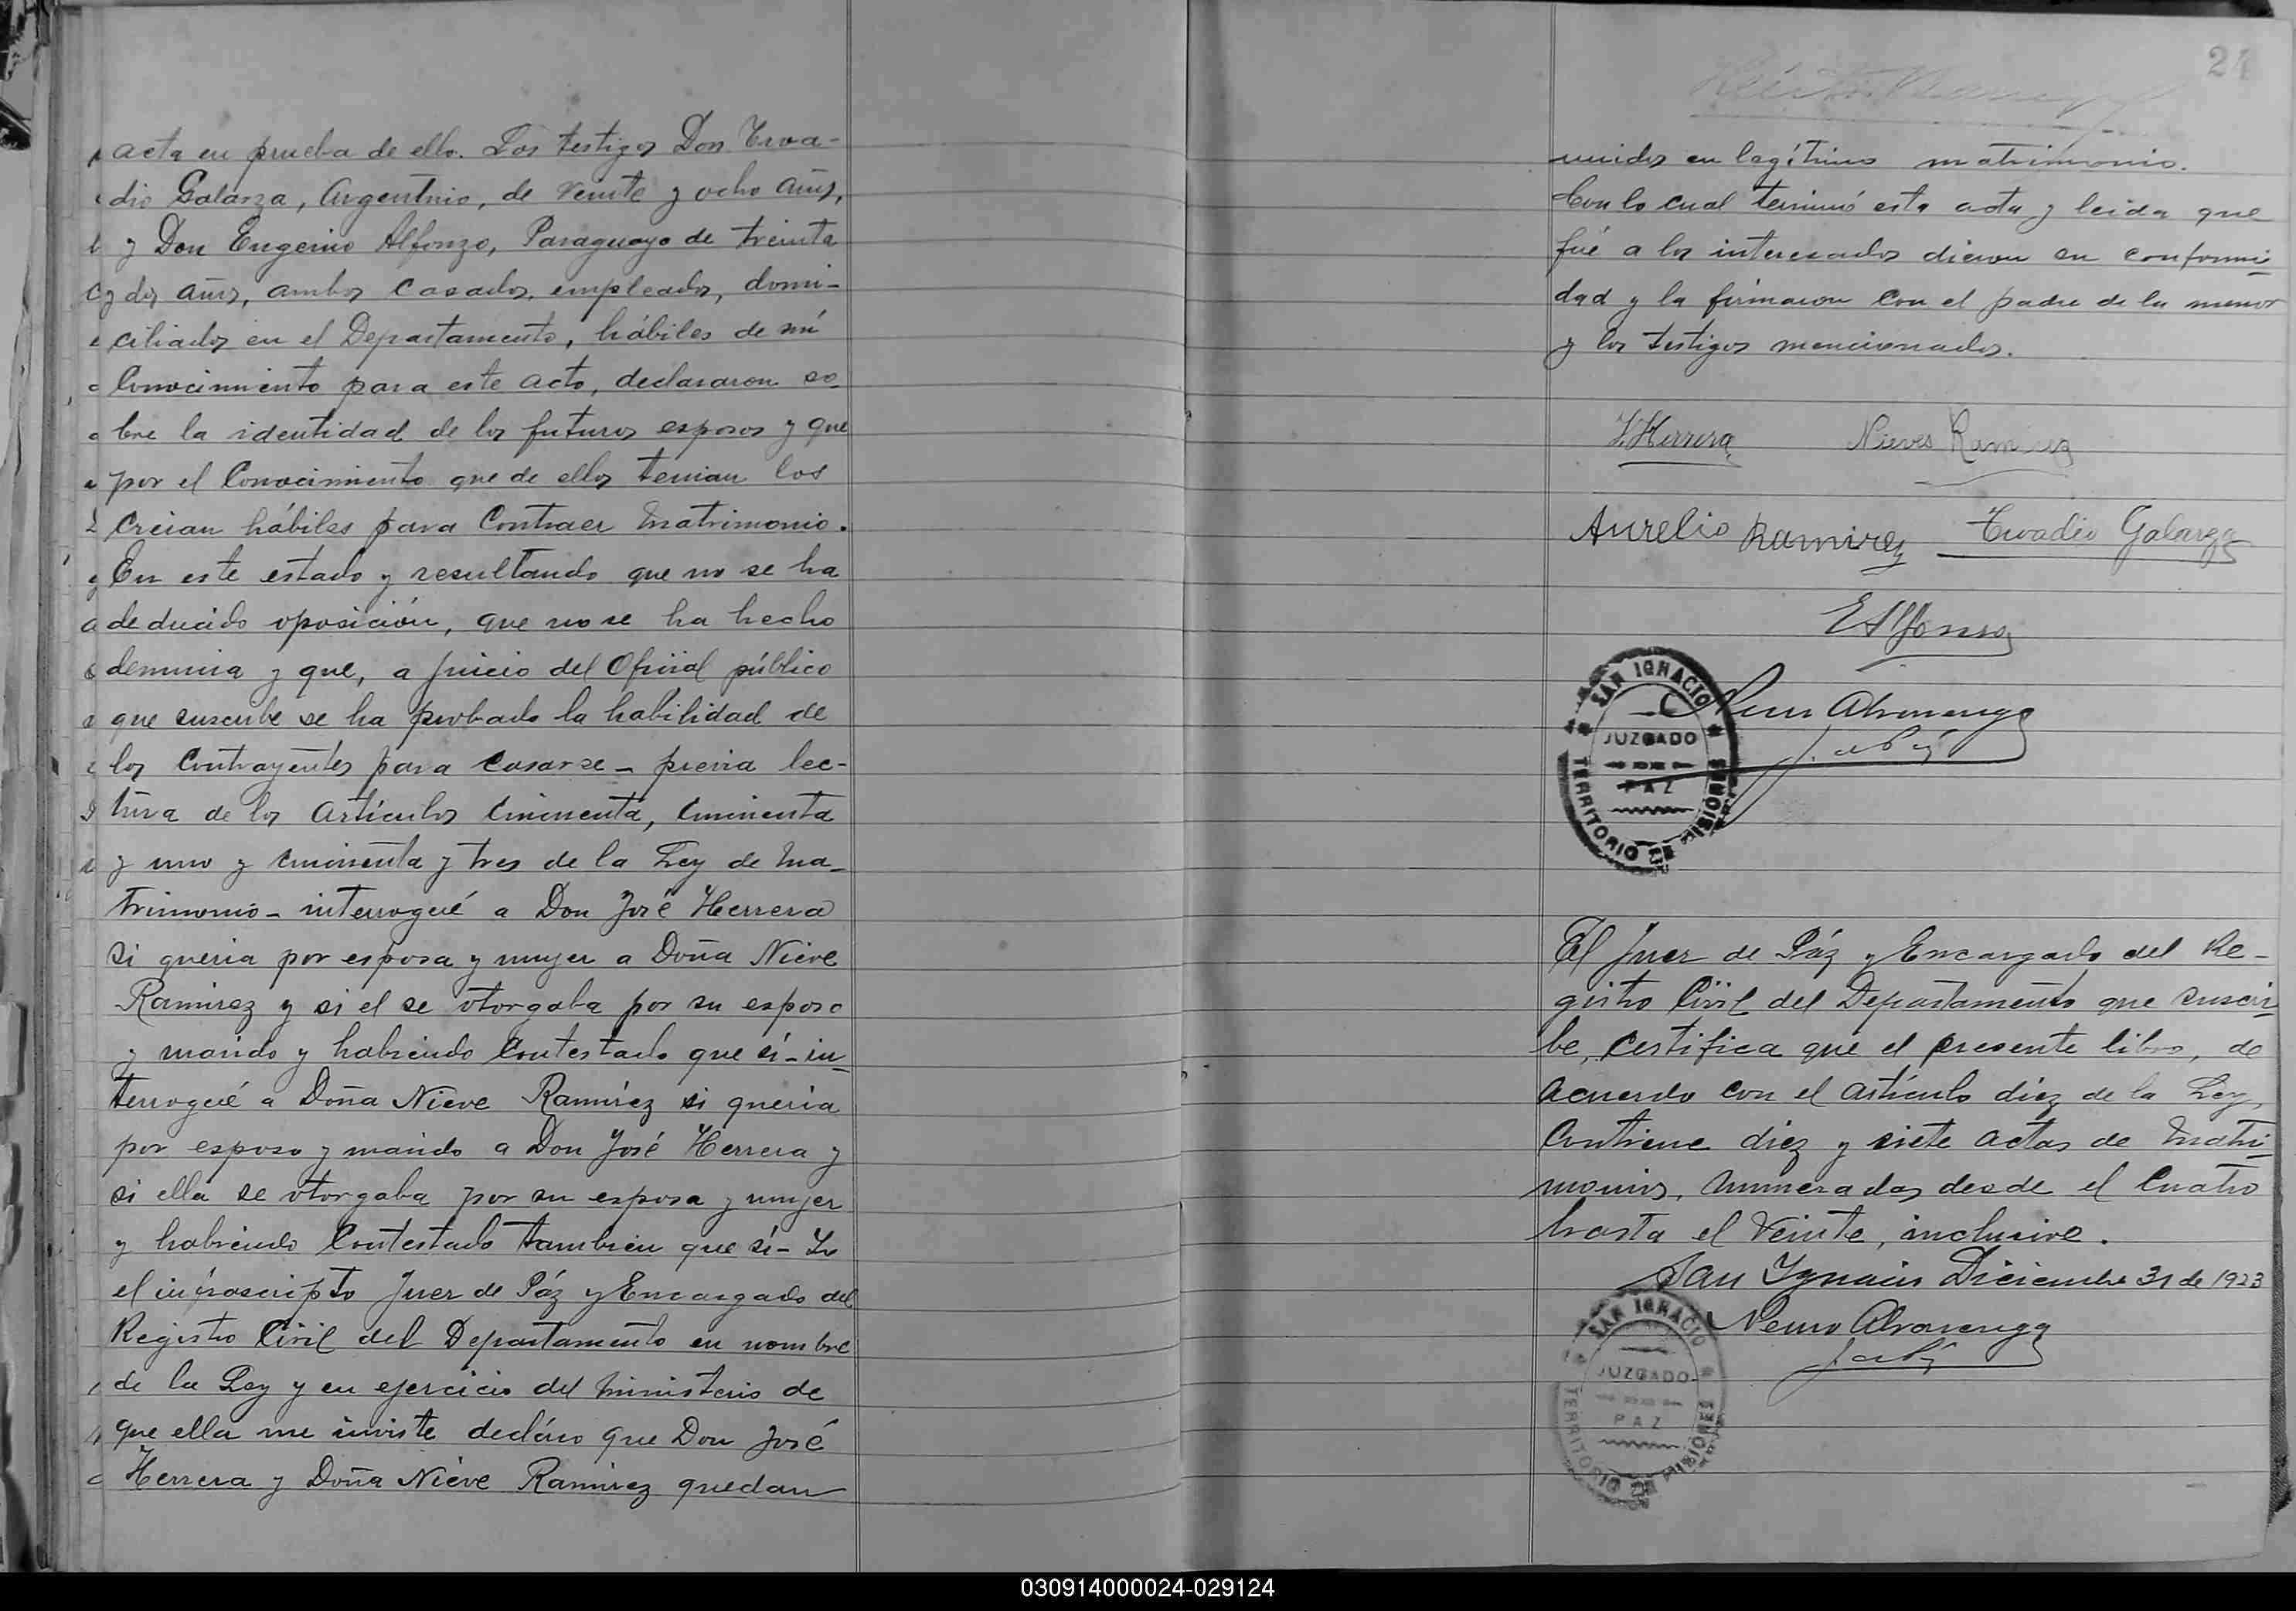 acta en prueba de ello. Los testigos Don Eva-
dio Galarza, Argentino, de veinte y ocho años,
y Don Eugenio Alfonzo, Paraguayo de treinta
y dos años, ambos casados, empleados, domi-
ciliados en el Departamento, hábiles de mi
conocimiento para este acto, declararon so-
bre la identidad de los futuros esposos y que
por el conocimiento que de ellos tenian los
creian hábiles para contraer matrimonio.
En este estado y resultando que no se ha
deducido oposición, que no se ha hecho
denuncia y que, a juicio del Oficial público
que suscribe se ha probado la habilidad de
los contrayentes para casarse - previa lec-
tura de los artículos cincuenta, cincuenta
y uno y cincuenta y tres de la Ley de ma-
trimonio - interrogué a Don José Herrera
si queria por esposa y mujer a Doña Nieve
Ramirez y si el se otorgaba por su esposo
y marido y habiendo contestado que sí - in-
terrogué a Doña Nieve Ramírez si queria
por esposo y marido a Don José Herrera y
si ella se otorgaba por su esposa y mujer
y habiendo contestado tambien que sí - Yo
el infrascripto Juez de Páz y Encargado del
Registro Civil del Departamento en nombre
de la Ley y en ejercicio del ministerio de
que ella me inviste decláro que Don José
Herrera y Doña Nieve Ramirez quedan
24
unidos en legítimo matrimonio.
Con lo cual terminó esta acta y leida que
fué a los interesados dieron su conformi-
dad y la firmaron con el padre de la menor
y los testigos mencionados.
J. Herrera Nieves Ramirez
Aurelio Ramirez Evadio Galarza
E Alfonso
Alvarenga
SAN IGNACIO
JUZGADO
DE
PAZ
TERRITORIO DE MISIONES
El Juez de Páz y Encargado del Re-
gistro Civil del Departamento que suscri-
be, certifica que el presente libro, de
acuerdo con el artículo diez de la Ley,
contiene diez y siete actas de matri-
monios, numeradas desde el cuatro
hasta el veinte, inclusive.
San Ignacio Diciembre 31 de 1923
Alvarenga
SAN IGNACIO
JUZGADO
DE
PAZ
TERRITORIO DE MISIONES
030914000024-029124